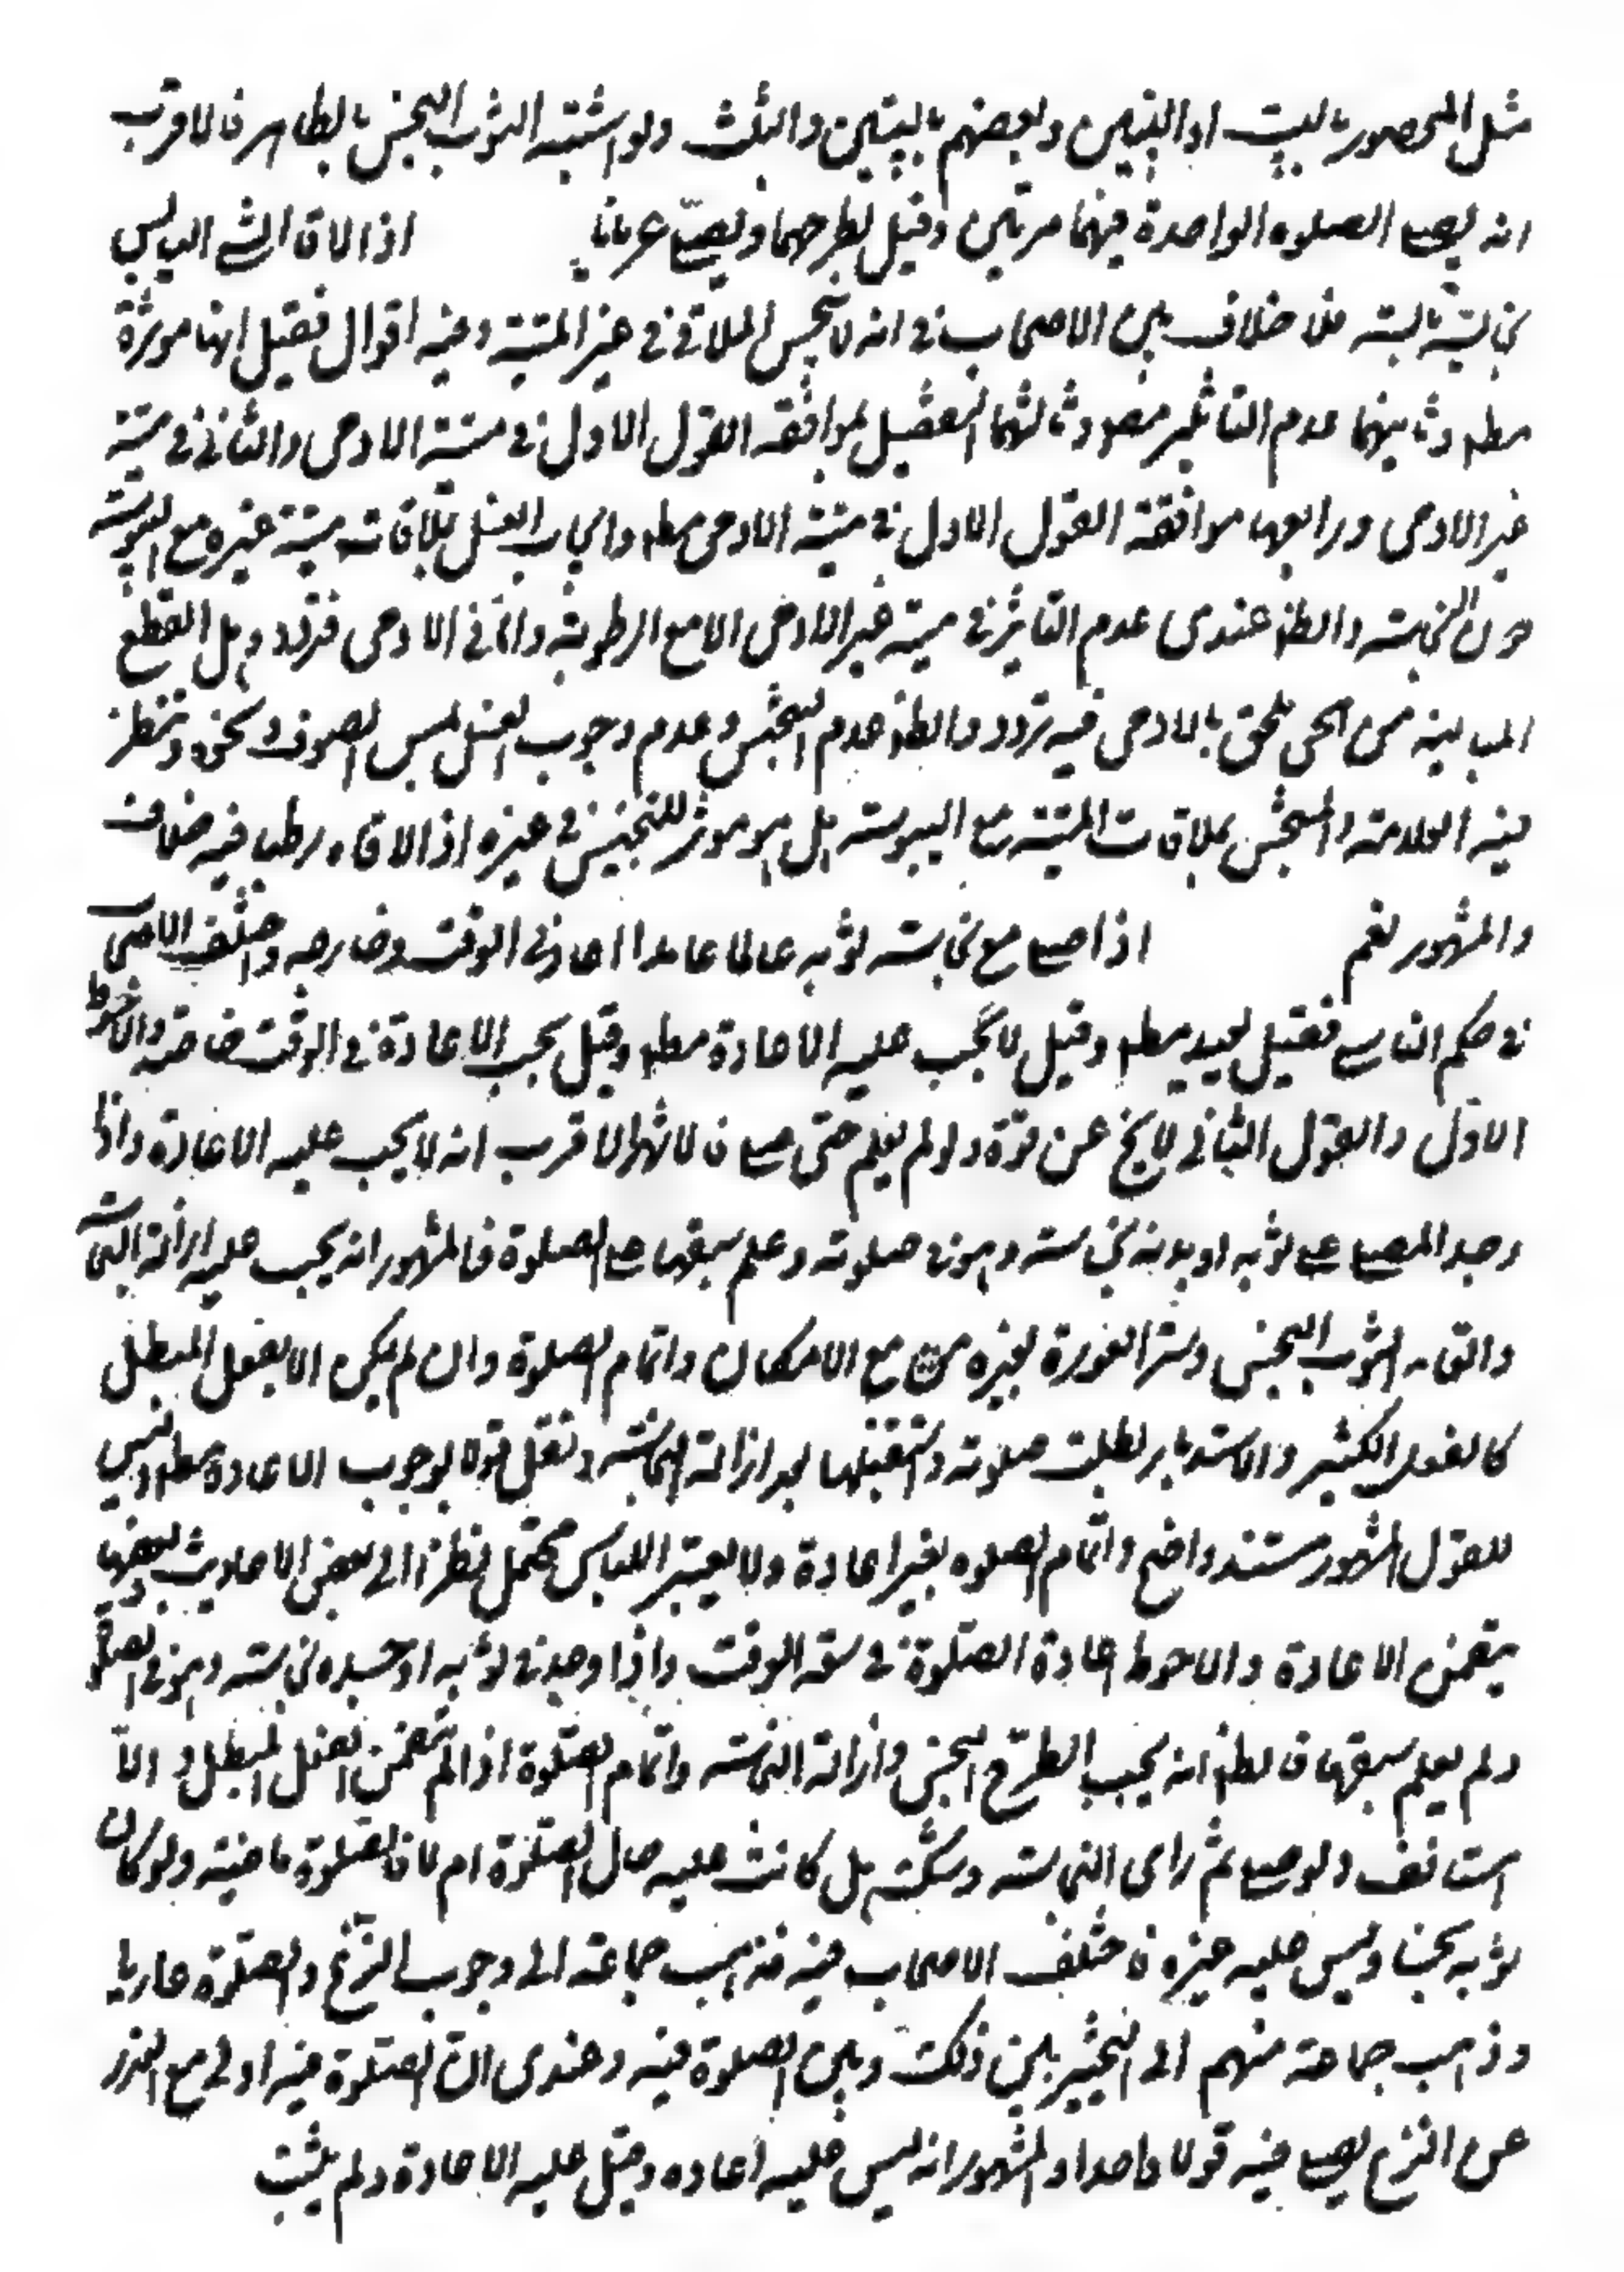 مثل المحصور بالبيت او البيتين وبعضهم بالبيتين والثلث ولو اشتبه الثوب النجس بالطاهر فالاقرب
انه يصلي الصلوه الواحدة فيهما مرتين وقيل يطرحهما ويصلي عريانا اذا لاقا الشي اليابس
نجاسة يابسة فلا خلاف بين الاصحاب في انه لا ينجس الملاقي في غير الميتة وفيه اقوال فقيل انها موثرة
مطلقا وثانيهما عدم التاثير مطلقا وثالثهما التفصيل بموافقه القول الاول في ميتة الادمي والثاني في ميتة
غير الادمي ورابعها موافقة القول الاول في ميتة الادمي مطلقا وايجاب الغسل بملاقات ميتة غيره مع اليبوسة
دون النجاسة والظاهر عندي عدم التاثير في ميتة غير الادمي الا مع الرطوبة واما في الادمي فتردد وهل القطع
المباينة من الحي تلحق بالادمي فيه تردد والظاهر عدم التنجس وعدم وجوب الغسل لمس الصوف ونحوه وتنظر
فيه العلامة والمنجس بملاقات الميتة مع اليبوسة هل هو موثر للتنجيس في غيره اذا لاقاه رطبا فيه خلاف
والمشهور نعم اذا صلى مع نجاسة ثوبه عالما عامدا اعاد في الوقت وخارجه واختلف الاصحاب
في حكم الناسي فقيل يعيد مطلقا وقيل لا يجب عليه الاعادة مطلقا وقيل يجب الاعادة في الوقت خاصة والاحوط
الاول والقول الثاني لا يخ عن قوة ولو لم يعلم حتى صلى فالاشهر الاقرب انه لا يجب عليه الاعادة واذا
وجد المصلي على ثوبه او بدنه نجاسة وهو في صلوته وعلم سبقها على الصلوة فالمشهور انه يجب عليه ازالة النجاسة
والقاء الثوب النجس وستر العورة بغيره مع الامكان واتمام الصلوة وان لم يكن الا بفعل المبطل
كالفعل الكثير والاستدبار بطلت صلوته واستقبلها بعد ازالة النجاسة ونقل قولا بوجوب الاعادة مطلقا وليس
للقول المشهور مستند واضح واتمام الصلوه بغير اعادة ولا يعتبر اللباس محتمل نظرا الى بعض الاحاديث وبعضها
يتضمن الاعادة والاحوط اعادة الصلوة في سعة الوقت واذا وجد في ثوبه او جسده نجاسة وهو في الصلوة
ولم يعلم سبقها فالظاهر انه يجب الطرح النجس وازالة النجاسة واتمام الصلوة اذا لم يتضمن الفعل المبطل والا
استانف ولو صلى ثم راى النجاسة وشك هل كانت عليه حال الصلوة ام لا فالصلوة ماضية ولو كان
ثوبه نجسا وليس عليه غيره فاختلف الاصحاب فيه فذهب جماعة الى وجوب النزع والصلوة عاريا
وذهب جماعة منهم الى التخيير بين ذلك وبين الصلوة فيه وعندي ان الصلوة فيه اولى مع العذر
عن النزع يصلي فيه قولا واحدا والمشهور انه ليس عليه اعاده وقيل عليه الاعادة ولم يثبت